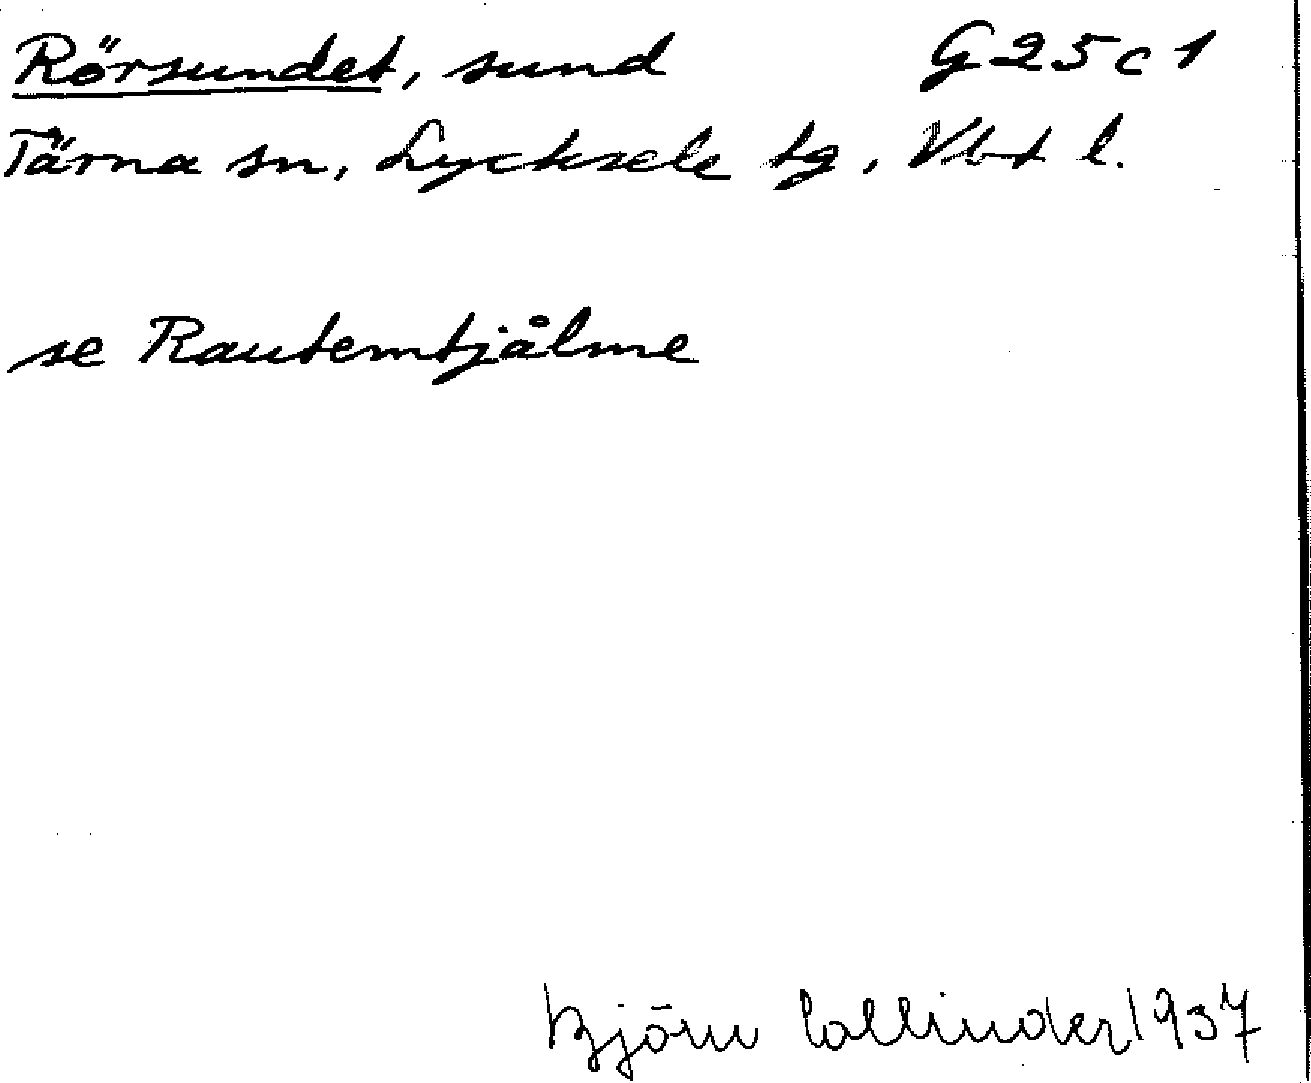 Rörsundet, sund G25c1
Tärna sn, Lycksele tg, Vbt l.
se Rautemtjålme
Björn Collinder 1937